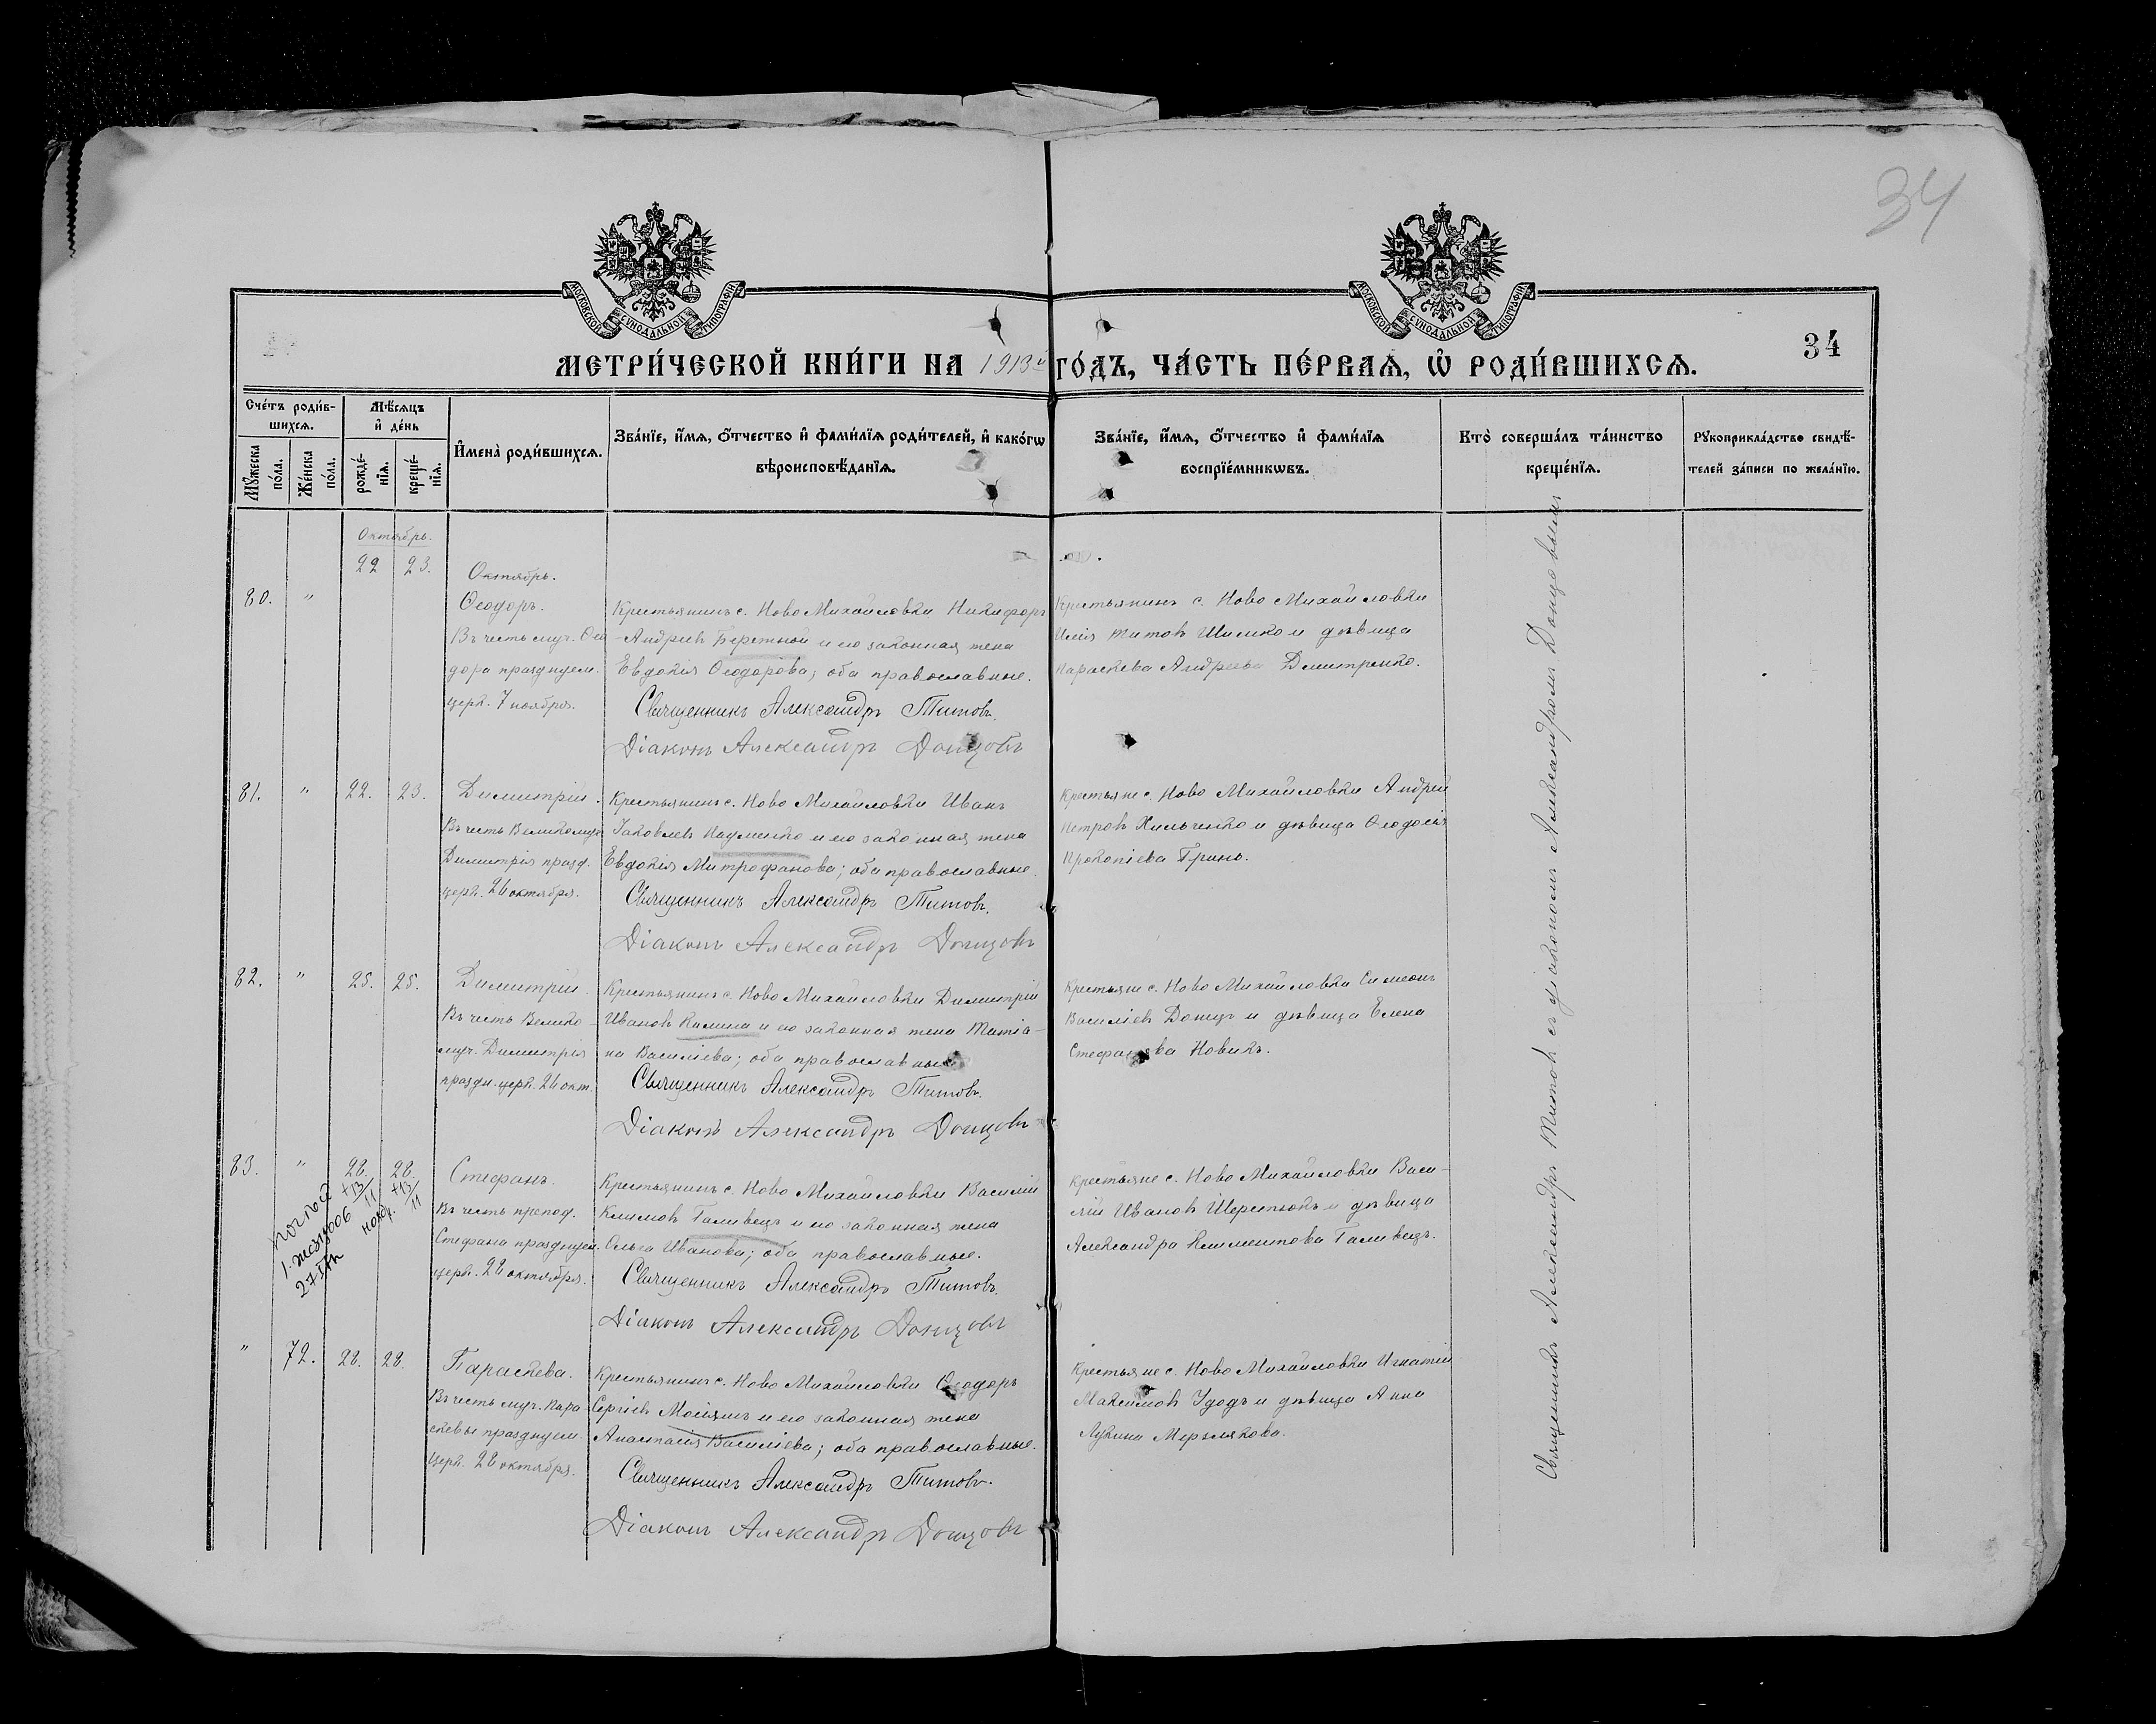 34
МОСКОВСКОЙ СУНОДАЛЬНОЙ ТИПОГРАФІИ
МОСКОВСКОЙ СУНОДАЛЬНОЙ ТИПОГРАФІИ
34
МЕТРИ́ЧЕСКОЙ КНИ́ГИ НА 1913й ГО́ДЪ, ЧА́СТЬ ПЕ́РВАѦ, Ѡ҆ РОДИ́ВШИХСѦ.
Сче́тъ роди́в-
шихсѧ.
Мꙋ́жеска по́ла.
Же́нска по́ла.
Мѣ́сѧцъ
и҆ де́нь
рожде́-
нїѧ.
креще́-
нїѧ.
И҆мена̀ роди́вшихсѧ.
Зва́нїе, и҆́мѧ, ѻ҆́тчество и҆ фами́лїѧ роди́телей, и҆ како́гѡ
вѣроисповѣ́данїѧ.
Зва́нїе, и҆́мѧ, ѻ҆́тчество и҆ фами́лїѧ
воспрїе́мникѡвъ.
Кто̀ соверша́лъ та́инство
креще́нїѧ.
Рꙋкоприкла́дство свидѣ́-
телей за́писи по жела́нїю.
Октябрь.
22 23.
Октябрь.
80. "
Ѳеодоръ.
Въ честь муч. Ѳео
дора празднуем.
церк. 7 ноября.
Крестьянинъ с. Ново Михайловки Никифоръ
Андреевъ Бережной и его законная жена
Евдокія Ѳеодорова; оба православные.
Священникъ Александръ Титовъ.
Діаконъ Александръ Донцовъ
Крестьянинъ с. Ново Михайловки
Илія Титовъ Шимко и дѣвица
Параскева Андреева Дмитренко.
81. " 22. 23.
Димитрій.
Въ честь Великомуч.
Димитрія празд.
церк. 26 октября.
Крестьянинъ с. Ново Михайловки Иванъ
Іаковлевъ Науменко и его законная жена
Евдокія Митрофанова; оба православные.
Священникъ Александръ Титовъ.
Діаконъ Александръ Донцовъ
Крестьяне с. Ново Михайловки Андрей
Петровъ Хильченко и дѣвица Ѳеодосія
Прокопіева Гринь.
82. " 25. 25.
Димитрій.
Въ честь Велико-
муч. Димитрія
праздн. церк. 26 окт.
Крестьянинъ с. Ново Михайловки Димитрій
Ивановъ Калина и его законная жена Татіа-
на Василіева; оба православные.
Священникъ Александръ Титовъ.
Діаконъ Александръ Донцовъ
Крестьяне с. Ново Михайловки Симеонъ
Василіевъ Донецъ и дѣвица Елена
Стефанова Новикъ.
83. " 28. 28.
+13/11 +13/11
Стефанъ.
Въ честь препод.
Стефана празднуем.
церк. 28 октября.
Крестьянинъ с. Ново Михайловки Василій
Климовъ Галивецъ и его законная жена
Ольга Иванова; оба православные.
Священникъ Александръ Титовъ.
Діаконъ Александръ Донцовъ
Крестьяне с. Ново Михайловки Васи-
лій Ивановъ Шерстюкъ и дѣвица
Александра Климентова Галивецъ.
" 72. 28. 28.
Параскева.
Въ честь муч. Пара-
скевы празднуем.
церк. 28 октября.
Крестьянинъ с. Ново Михайловки Ѳеодоръ
Сергіевъ и его законная жена
Анастасія Василіева; оба православные.
Священникъ Александръ Титовъ.
Діаконъ Александръ Донцовъ
Крестьяне с. Ново Михайловки Игнатій
Максимовъ Удодъ и дѣвица Анна
Лукина Мерзлякова.
Священникъ Александръ Титовъ съ діакономъ Александромъ Донцовымъ